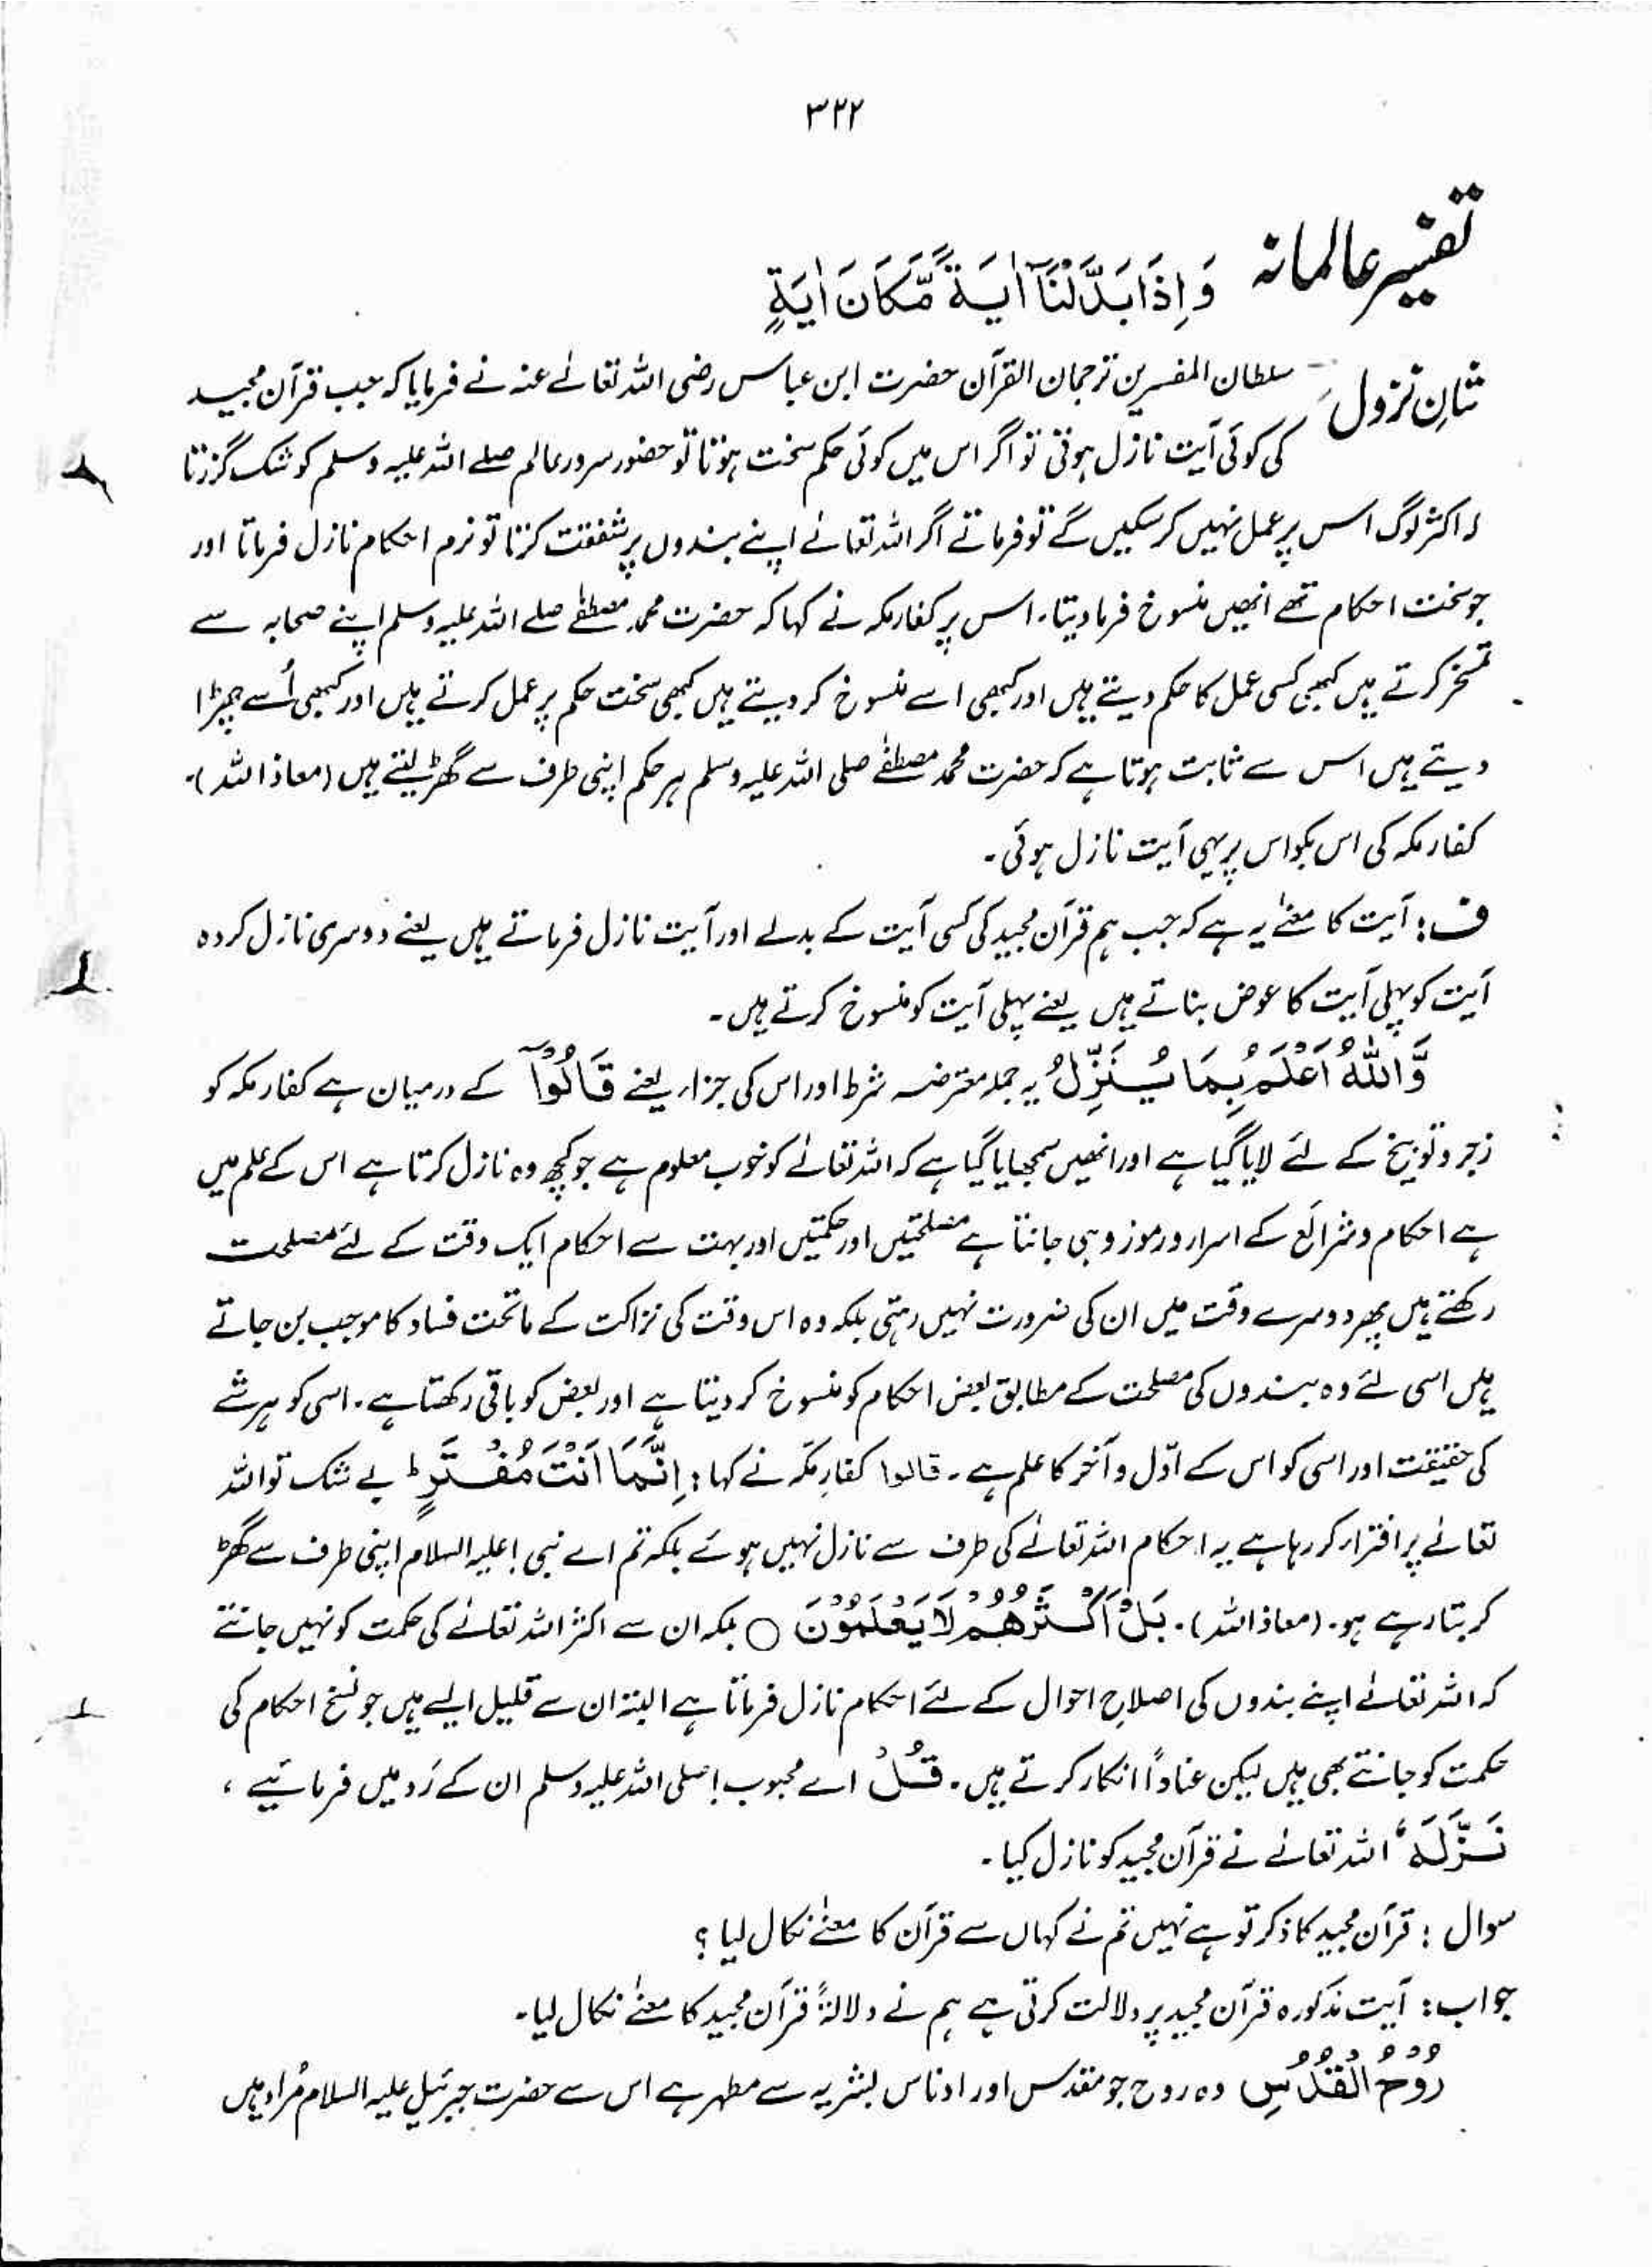 ۳۲۲
تفسیر عالمانہ وَ اِذَا بَدَّلْنَآ اٰیَةً مَّكَانَ اٰیَةٍ
شانِ نزول سلطان المفسرین ترجمان القرآن حضرت ابن عباس رضی اللہ تعالےٰ عنہ نے فرمایا کہ جب قرآن مجید
کی کوئی آیت نازل ہوتی تو اگر اس میں کوئی حکم سخت ہوتا تو حضور سرور عالم صلے اللہ علیہ وسلم کو شک گزرتا
اکثر لوگ اس پر عمل نہیں کر سکیں گے تو فرماتے اگر اللہ تعالےٰ اپنے بندوں پر شفقت کرتا تو نرم احکام نازل فرماتا اور
جو سخت احکام تھے انھیں منسوخ فرما دیتا۔ اس پر کفار مکہ نے کہا کہ حضرت محمد مصطفےٰ صلے اللہ علیہ وسلم اپنے صحابہ سے
تمسخر کرتے ہیں کبھی کسی عمل کا حکم دیتے ہیں اور کبھی اسے منسوخ کر دیتے ہیں کبھی سخت حکم پر عمل کرتے ہیں اور کبھی اُسے چھڑا
دیتے ہیں اس سے ثابت ہوتا ہے کہ حضرت محمد مصطفےٰ صلی اللہ علیہ وسلم ہر حکم اپنی طرف سے گھڑ لیتے ہیں (معاذ اللہ)۔
کفار مکہ کی اس بکواس پر یہی آیت نازل ہوئی۔
ف : آیت کا معنےٰ یہ ہے کہ جب ہم قرآن مجید کی کسی آیت کے بدلے اور آیت نازل فرماتے ہیں یعنے دوسری نازل کردہ
آیت کو پہلی آیت کا عوض بناتے ہیں یعنے پہلی آیت کو منسوخ کرتے ہیں۔
وَّاللّٰهُ اَعْلَمُ بِمَا یُنَزِّلُ یہ جملہ معترضہ شرط اور اس کی جزاء یعنے قَالُوْٓا کے درمیان ہے کفار مکہ کو
زجر و توبیخ کے لئے لایا گیا ہے اور انھیں سمجھایا گیا ہے کہ اللہ تعالےٰ کو خوب معلوم ہے جو کچھ وہ نازل کرتا ہے اس کے علم میں
ہے احکام و شرائع کے اسرار و رموز وہی جانتا ہے مصلحتیں اور حکمتیں اور بہت سے احکام ایک وقت کے لئے مصلحت
رکھتے ہیں پھر دوسرے وقت میں ان کی ضرورت نہیں رہتی بلکہ وہ اس وقت کی نزاکت کے ماتحت فساد کا موجب بن جاتے
ہیں اسی لئے وہ بندوں کی مصلحت کے مطابق بعض احکام کو منسوخ کر دیتا ہے اور بعض کو باقی رکھتا ہے۔ اسی کو ہر شے
کی حقیقت اور اسی کو اس کے اوّل و آخر کا علم ہے۔ قالوا کفارِ مکّہ نے کہا : اِنَّمَاۤ اَنْتَ مُفْتَرٍ ؕ بے شک تو اللہ
تعالےٰ پر افتراء کر رہا ہے یہ احکام اللہ تعالےٰ کی طرف سے نازل نہیں ہوئے بلکہ تم اے نبی ! علیہ السلام اپنی طرف سے گھڑ
کر بتا رہے ہو۔ (معاذ اللہ)۔ بَلْ اَكْثَرُهُمْ لَا یَعْلَمُوْنَ ○ بلکہ ان سے اکثر اللہ تعالےٰ کی حکمت کو نہیں جانتے
کہ اللہ تعالےٰ اپنے بندوں کی اصلاح احوال کے لئے احکام نازل فرماتا ہے البتہ ان سے قلیل ایسے ہیں جو نسخ احکام کی
حکمت کو جانتے بھی ہیں لیکن عناداً انکار کرتے ہیں۔ قُلْ اے محبوب ! صلی اللہ علیہ وسلم ان کے رَد میں فرمائیے ،
نَزَّلَهٗ اللہ تعالےٰ نے قرآن مجید کو نازل کیا۔
سوال : قرآن مجید کا ذکر تو ہے نہیں تم نے کہاں سے قرآن کا معنےٰ نکال لیا ؟
جواب : آیت مذکورہ قرآن مجید پر دلالت کرتی ہے ہم نے دلالةً قرآن مجید کا معنےٰ نکال لیا۔
رُوْحُ الْقُدُسِ وہ روح جو مقدس اور ادناس بشریہ سے مطہر ہے اس سے حضرت جبرئیل علیہ السلام مُراد ہیں